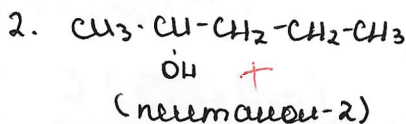 2. CH3-CH-CH2-CH2-CH3
OH
(пентанол-2)